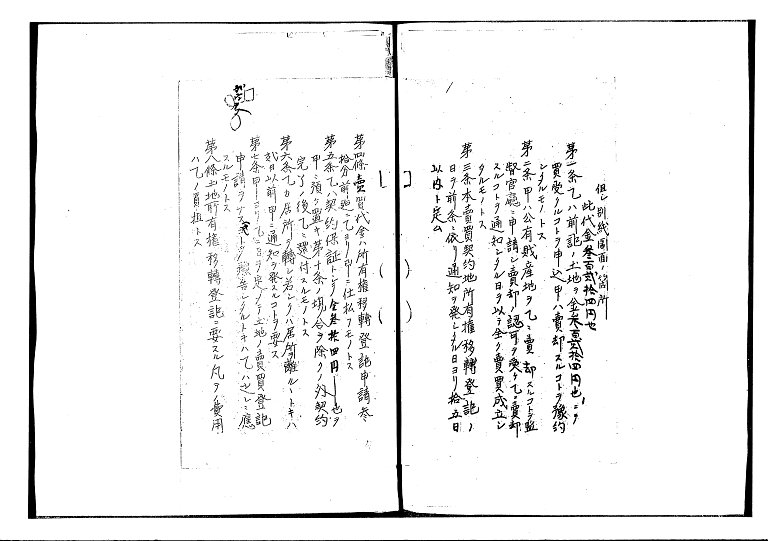 但シ別紙圖面ノ箇所
此代金叁百貳拾四円也
第一条乙ハ前記ノ土地ヲ金叁百貳拾四円也ニテ
買受クルコトヲ申込甲ハ賣却スルコトヲ豫約
シタルモノトス
第二条甲ハ公有財産地ヲ乙ニ賣却スルコトヲ監
督官廳ニ申請シ賣却ノ認可ヲ受ケ乙ニ賣却
スルコトヲ通知シタル日ヲ以テ全ク賣買成立シ
タルモノトス
第三条本賣買契約地所有権移轉登記ノ
日ヲ前条ニ依リ通知ヲ発シタル日ヨリ拾五日
以内ト定ム
第四條賣買代金ハ所有権移轉登記申請
拾分前迄ニ乙ヨリ甲ニ仕払フモノトス
第五条乙ハ契約保証トシテ金叁拾四円也ヲ
甲ニ預ケ置キ第十条ノ場合ヲ除クノ外契約
完了ノ後乙ニ還付スルモノトス
第六条乙カ居所ヲ轉シ若シクハ居所離ルヽトキハ
以前甲ニ通知ヲ発スルコトヲ要ス
第七条甲ヨリ乙ニ日ヲ定メテ土地ノ賣買登記
申請ヲナスヘキコトヲ豫告シタルトキハ乙ハ之レニ應
スルモノトス
第八條土地所有権移轉登記ニ要スル凡テノ費用
ハ乙ノ負担トス